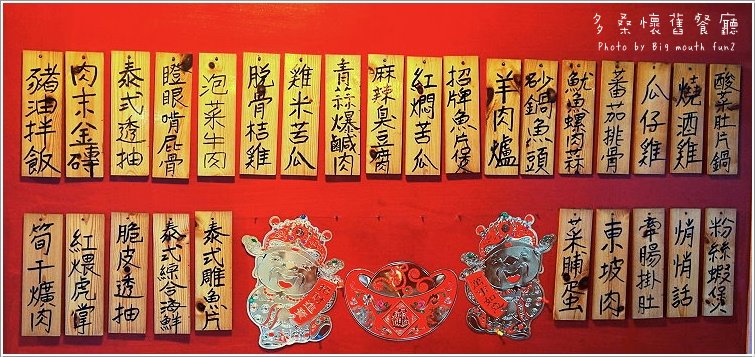 多桑懷舊餐廳
Photo by Big mouth fun2
豬油拌飯
肉末金磚
泰式透抽
瞪眼啃屁骨
泡菜牛肉
脫骨桔雞
雞米苦瓜
青蒜爆鹹肉
麻辣臭豆腐
紅燜苦瓜
招牌魚片煲
羊肉爐
砂鍋魚頭
魷魚螺肉蒜
蕃茄排骨
瓜仔雞
燒酒雞
酸菜肚片鍋
筍干爌肉
紅煨虎掌
脆皮透抽
泰式綜合海鮮
泰式雕魚片
菜脯蛋
東坡肉
牽腸掛肚
悄悄話
粉絲蝦煲